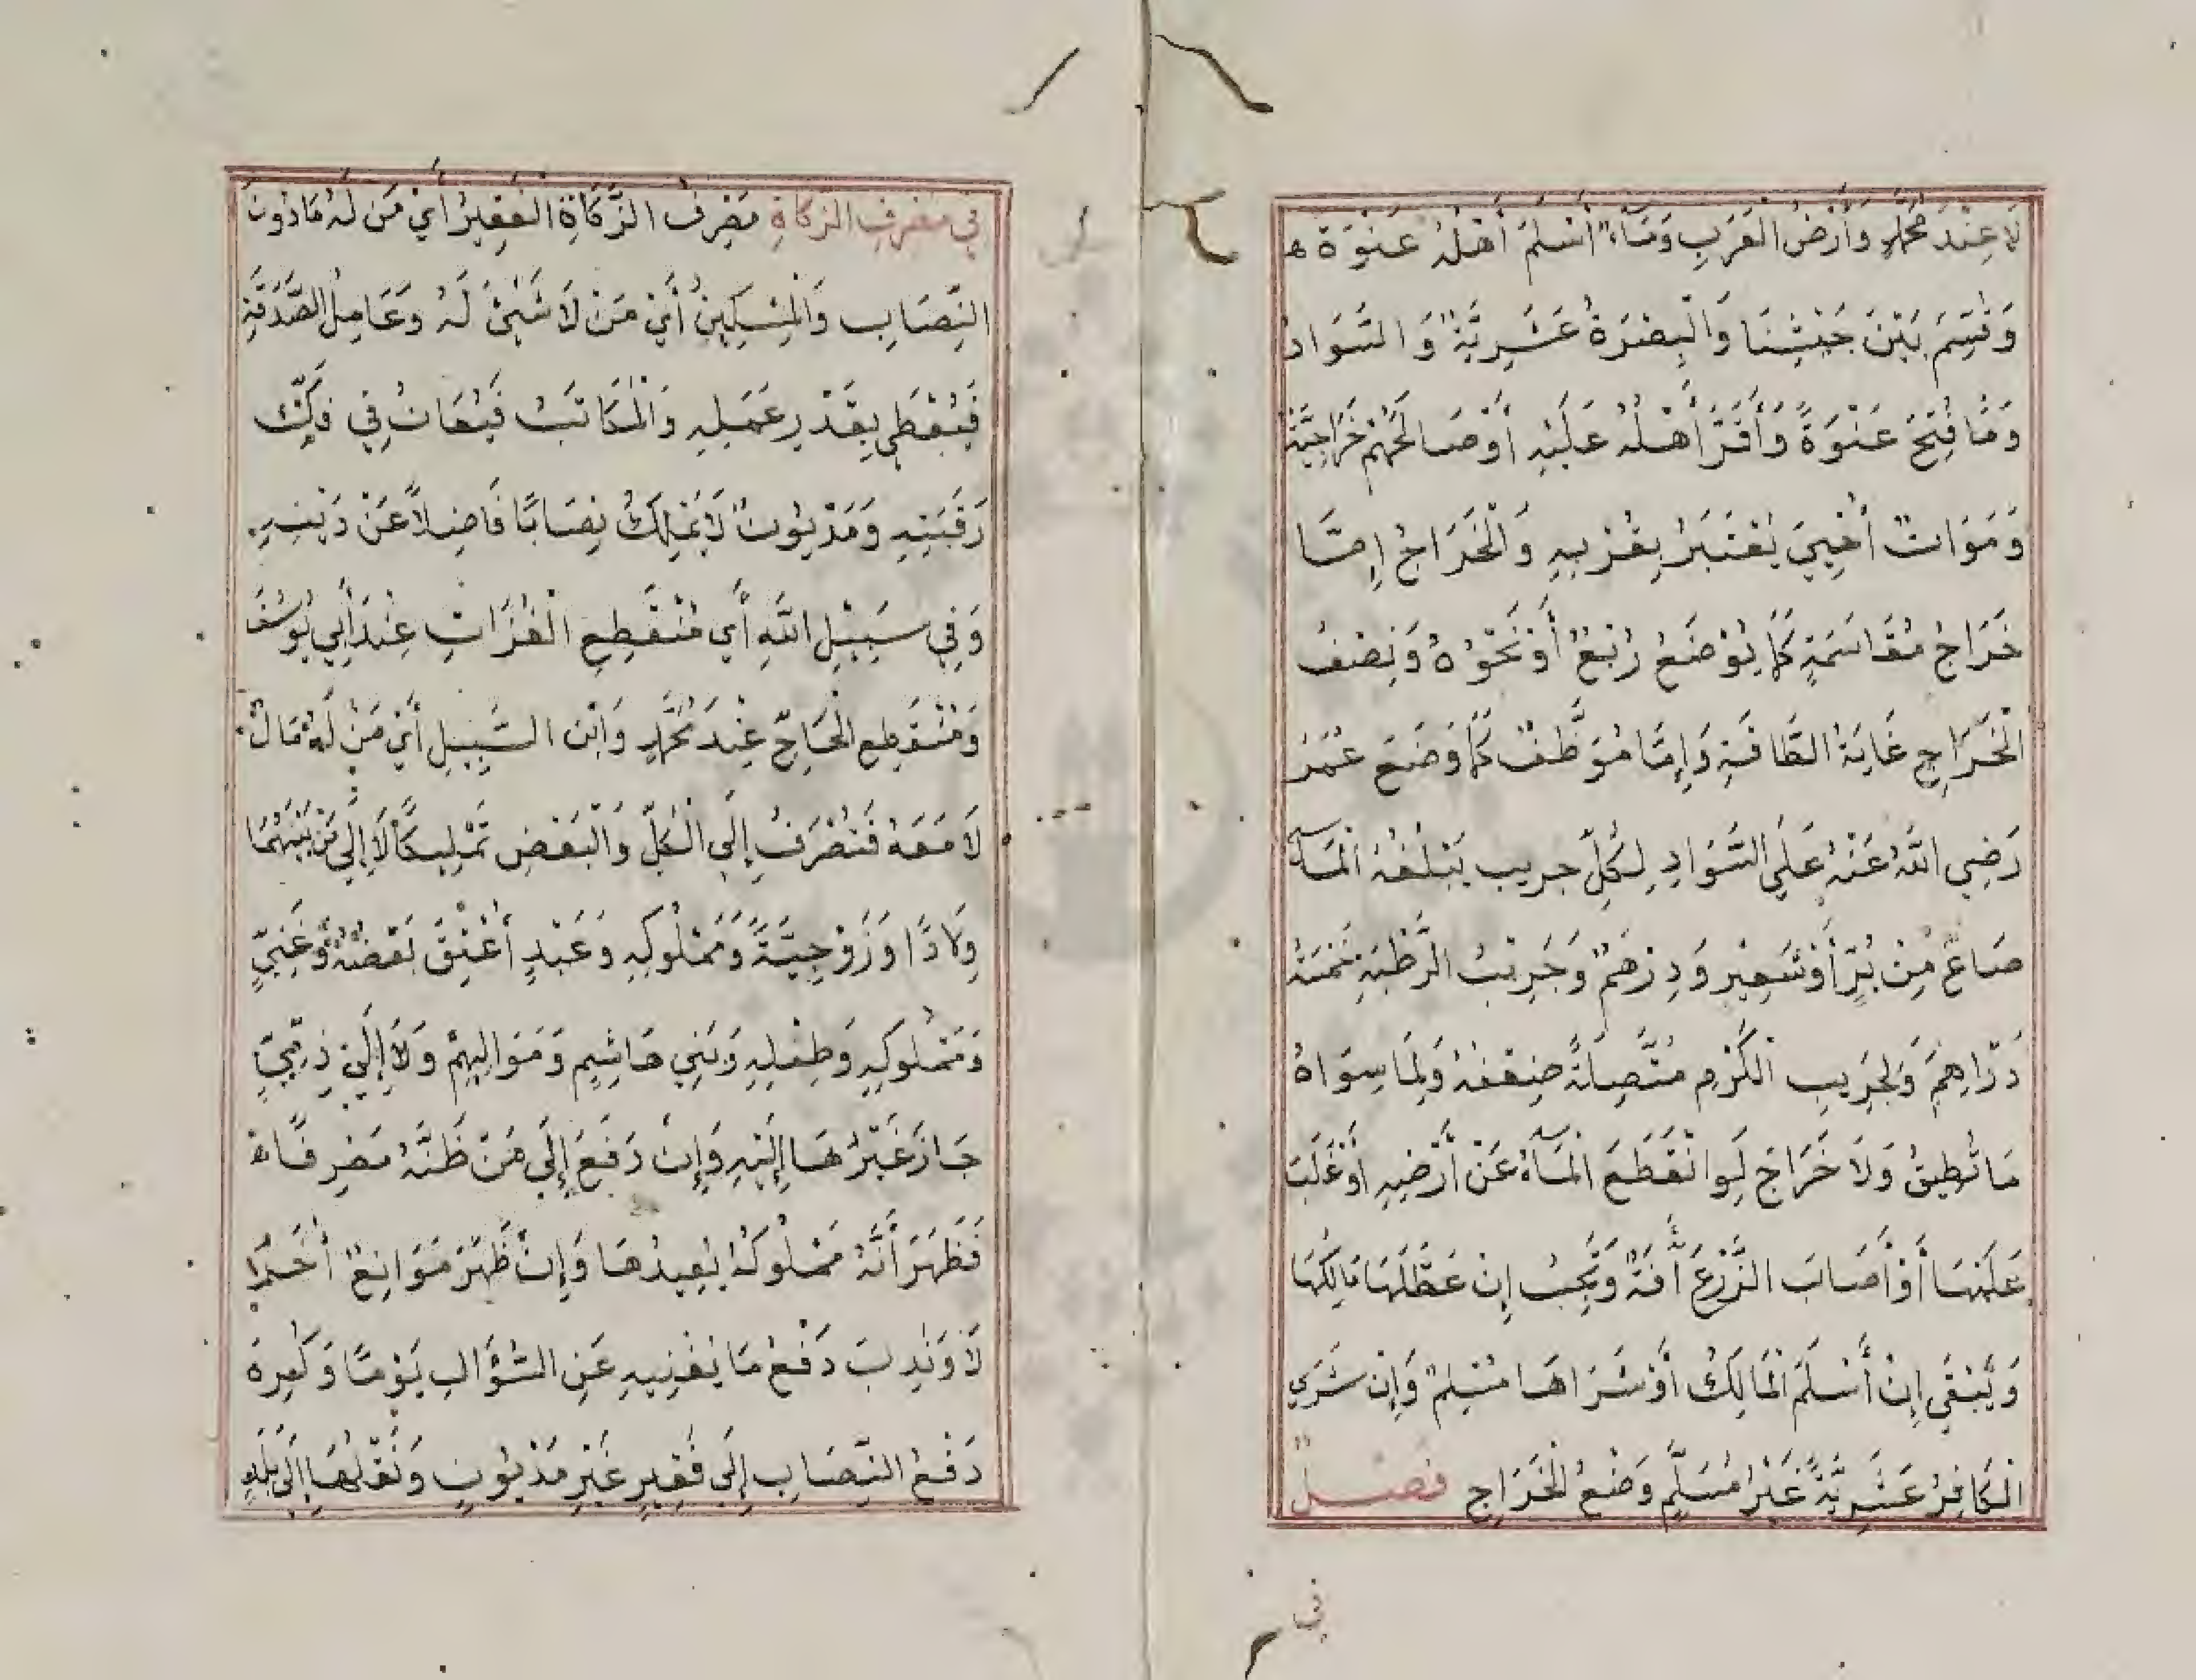 لَا عِنْدَ مُحَمَّدٍ وَأَرْضُ الْعَرَبِ وَمَاءٌ أَسْلَمَ أَهْلُهُ عَنْوَةً ه
وَقُسِّمَ بَيْنَ جَيْشِنَا وَالْبِصْرَةُ عَشَرِيَّةٌ وَالسَّوَادُ
وَمَا فُتِحَ عَنْوَةً وَأَقَرَّ أَهْلُهُ عَلَيْهِ أَوْ صَالَحَهُمْ خَرَاجِيَّةٌ
وَمَوَاتٌ أُحْيِيَ يُعْتَبَرُ بِقُرْبِهِ وَالْخَرَاجُ إِمَّا
خَرَاجُ مُقَاسَمَةٍ كَمَا يُوْضَعُ رُبْعٌ أَوْ نَحْوُهُ وَنِصْفُ
الْخَرَاجِ غَايَةُ الطَّاقَةِ وَإِمَّا مُوَظَّفٌ كَمَا وَضَعَ عُمَرُ
رَضِيَ اللَّهُ عَنْهُ عَلَى السَّوَادِ لِكُلِّ جريب يَبْلُغُهُ الْمَآءُ
صَاعٌ مِنْ بُرٍّ أَوْ شَعِيْرٍ وَدِرْهَمٌ وَجَرِيْبُ الرَّطْبَةِ خَمْسَةُ
دَرَاهِمَ وَلِجَرِيبِ الْكَرْمِ مُتَّصِلَةً ضِعْفُهُ وَلِمَا سِوَاهُ
مَا تُطِيقُ وَلَا خَرَاجَ لَوِ انْقَطَعَ الْمَآءُ عَنْ أَرْضِهِ أَوْ غَلَبَ
عَلَيْهَا أَوْ أَصَابَ الزَّرْعَ آفَةٌ وَيَجِبُ إِنْ عَطَّلَهَا مَالِكُهَا
وَيَبْقَى إِنْ أَسْلَمَ الْمَالِكُ أَوْ شَرَاهَا مُسْلِمٌ وَإِنْ شَرَى
الْكَافِرُ عَشَرِيَّةً غَيْرُ مُسْلِمٍ وَضْعُ الْخَرَاجِ فصل
في
فِي مَصْرِفِ الزَّكَاةِ مَصْرِفُ الزَّكَاةِ الْفَقِيْرُ أَيْ مَنْ لَهُ مَا دُونَ
النِّصَابِ وَالْمِسْكِيْنُ أَيْ مَنْ لَا شَيْئَ لَهُ وَعَامِلُ الصَّدَقَةِ
فَيُعْطَى بِقَدْرِ عَمَلِهِ وَالْمُكَاتَبُ فَيُعَانُ فِي فَكِّ
رَقَبَتِهِ وَمَدْيُوْنٌ لَا يَمْلِكُ نِصَابًا فَاضِلًا عَنْ دَيْنِهِ
وَفِي سَبِيْلِ اللَّهِ أَي مُنْقَطِعِ الْغُزَاتِ عِنْدَ أَبِي يُوسُفَ
وَمُنْقَطِعِ الْحَاجِّ عِنْدَ مُحَمَّدٍ وَابْنِ السَّبِيلِ أَيْ مَنْ لَهُ مَالٌ
لَا مَعَهُ فَتُصْرَفُ إِلَى الْكُلِّ وَالْبَعْضِ تَمْلِيكًا لَا إِلَى مَنْ بَيْنَهُمَا
وِلَادًا وَزَوْجِيَّةً وَمَمْلُوكِهِ وَعَبْدٍ أُعْتِقَ بَعْضُهُ وَغَنِيٍّ
وَمَمْلُوكِهِ وَطِفْلِهِ وَبَنِي هَاشِمٍ وَمَوَالِيهِمْ وَلَا إِلَى ذِمِّيٍّ
جَازَ غَيْرُهَا إِلَيْهِ وَإِنْ دَفَعَ إِلَى مَنْ ظَنَّهُ مَصْرِفًا ه
فَظَهَرَ أَنَّهُ مَمْلُوكُهُ يُعِيدُهَا وَإِنْ ظَهَرَ مَوَانِعُ أُخَرُ
لَا وَنُدِبَ دَفْعُ مَا يُغْنِيهِ عَنِ السُّؤَالِ يَوْمًا وَكُرِهَ
دَفْعُ النِّصَابِ إِلَى فَقِيرٍ غَيْرِ مَدْيُوْنٍ وَنَقْلُهَا إِلَى بَلَدٍ